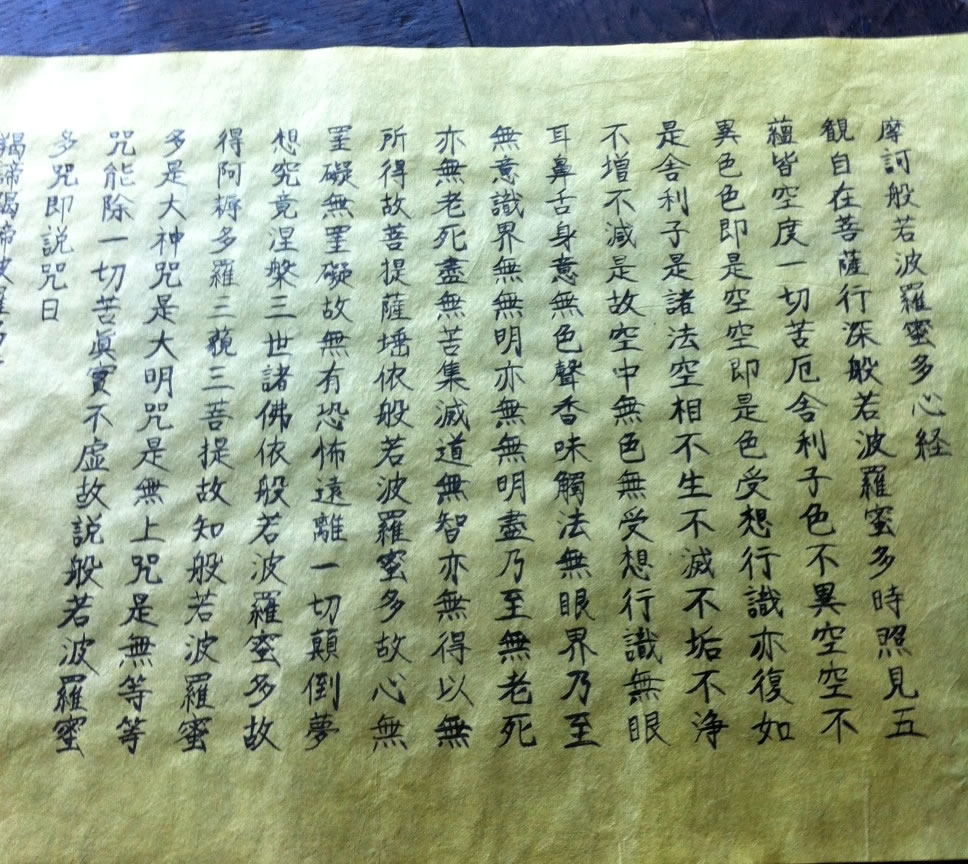 摩訶般若波羅蜜多心経
観自在菩薩行深般若波羅蜜多時照見五
蘊皆空度一切苦厄舎利子色不異空空不
異色色即是空空即是色受想行識亦復如
是舎利子是諸法空相不生不滅不垢不浄
不増不減是故空中無色無受想行識無眼
耳鼻舌身意無色聲香味觸法無眼界乃至
無意識界無無明亦無無明盡乃至無老死
亦無老死盡無苦集滅道無智亦無得以無
所得故菩提薩埵依般若波羅蜜多故心無
罣礙無罣礙故無有恐怖遠離一切顛倒夢
想究竟涅槃三世諸佛依般若波羅蜜多故
得阿耨多羅三藐三菩提故知般若波羅蜜
多是大神咒是大明咒是無上咒是無等等
咒能除一切苦眞實不虚故説般若波羅蜜
多咒即説咒曰
羯諦羯諦波羅